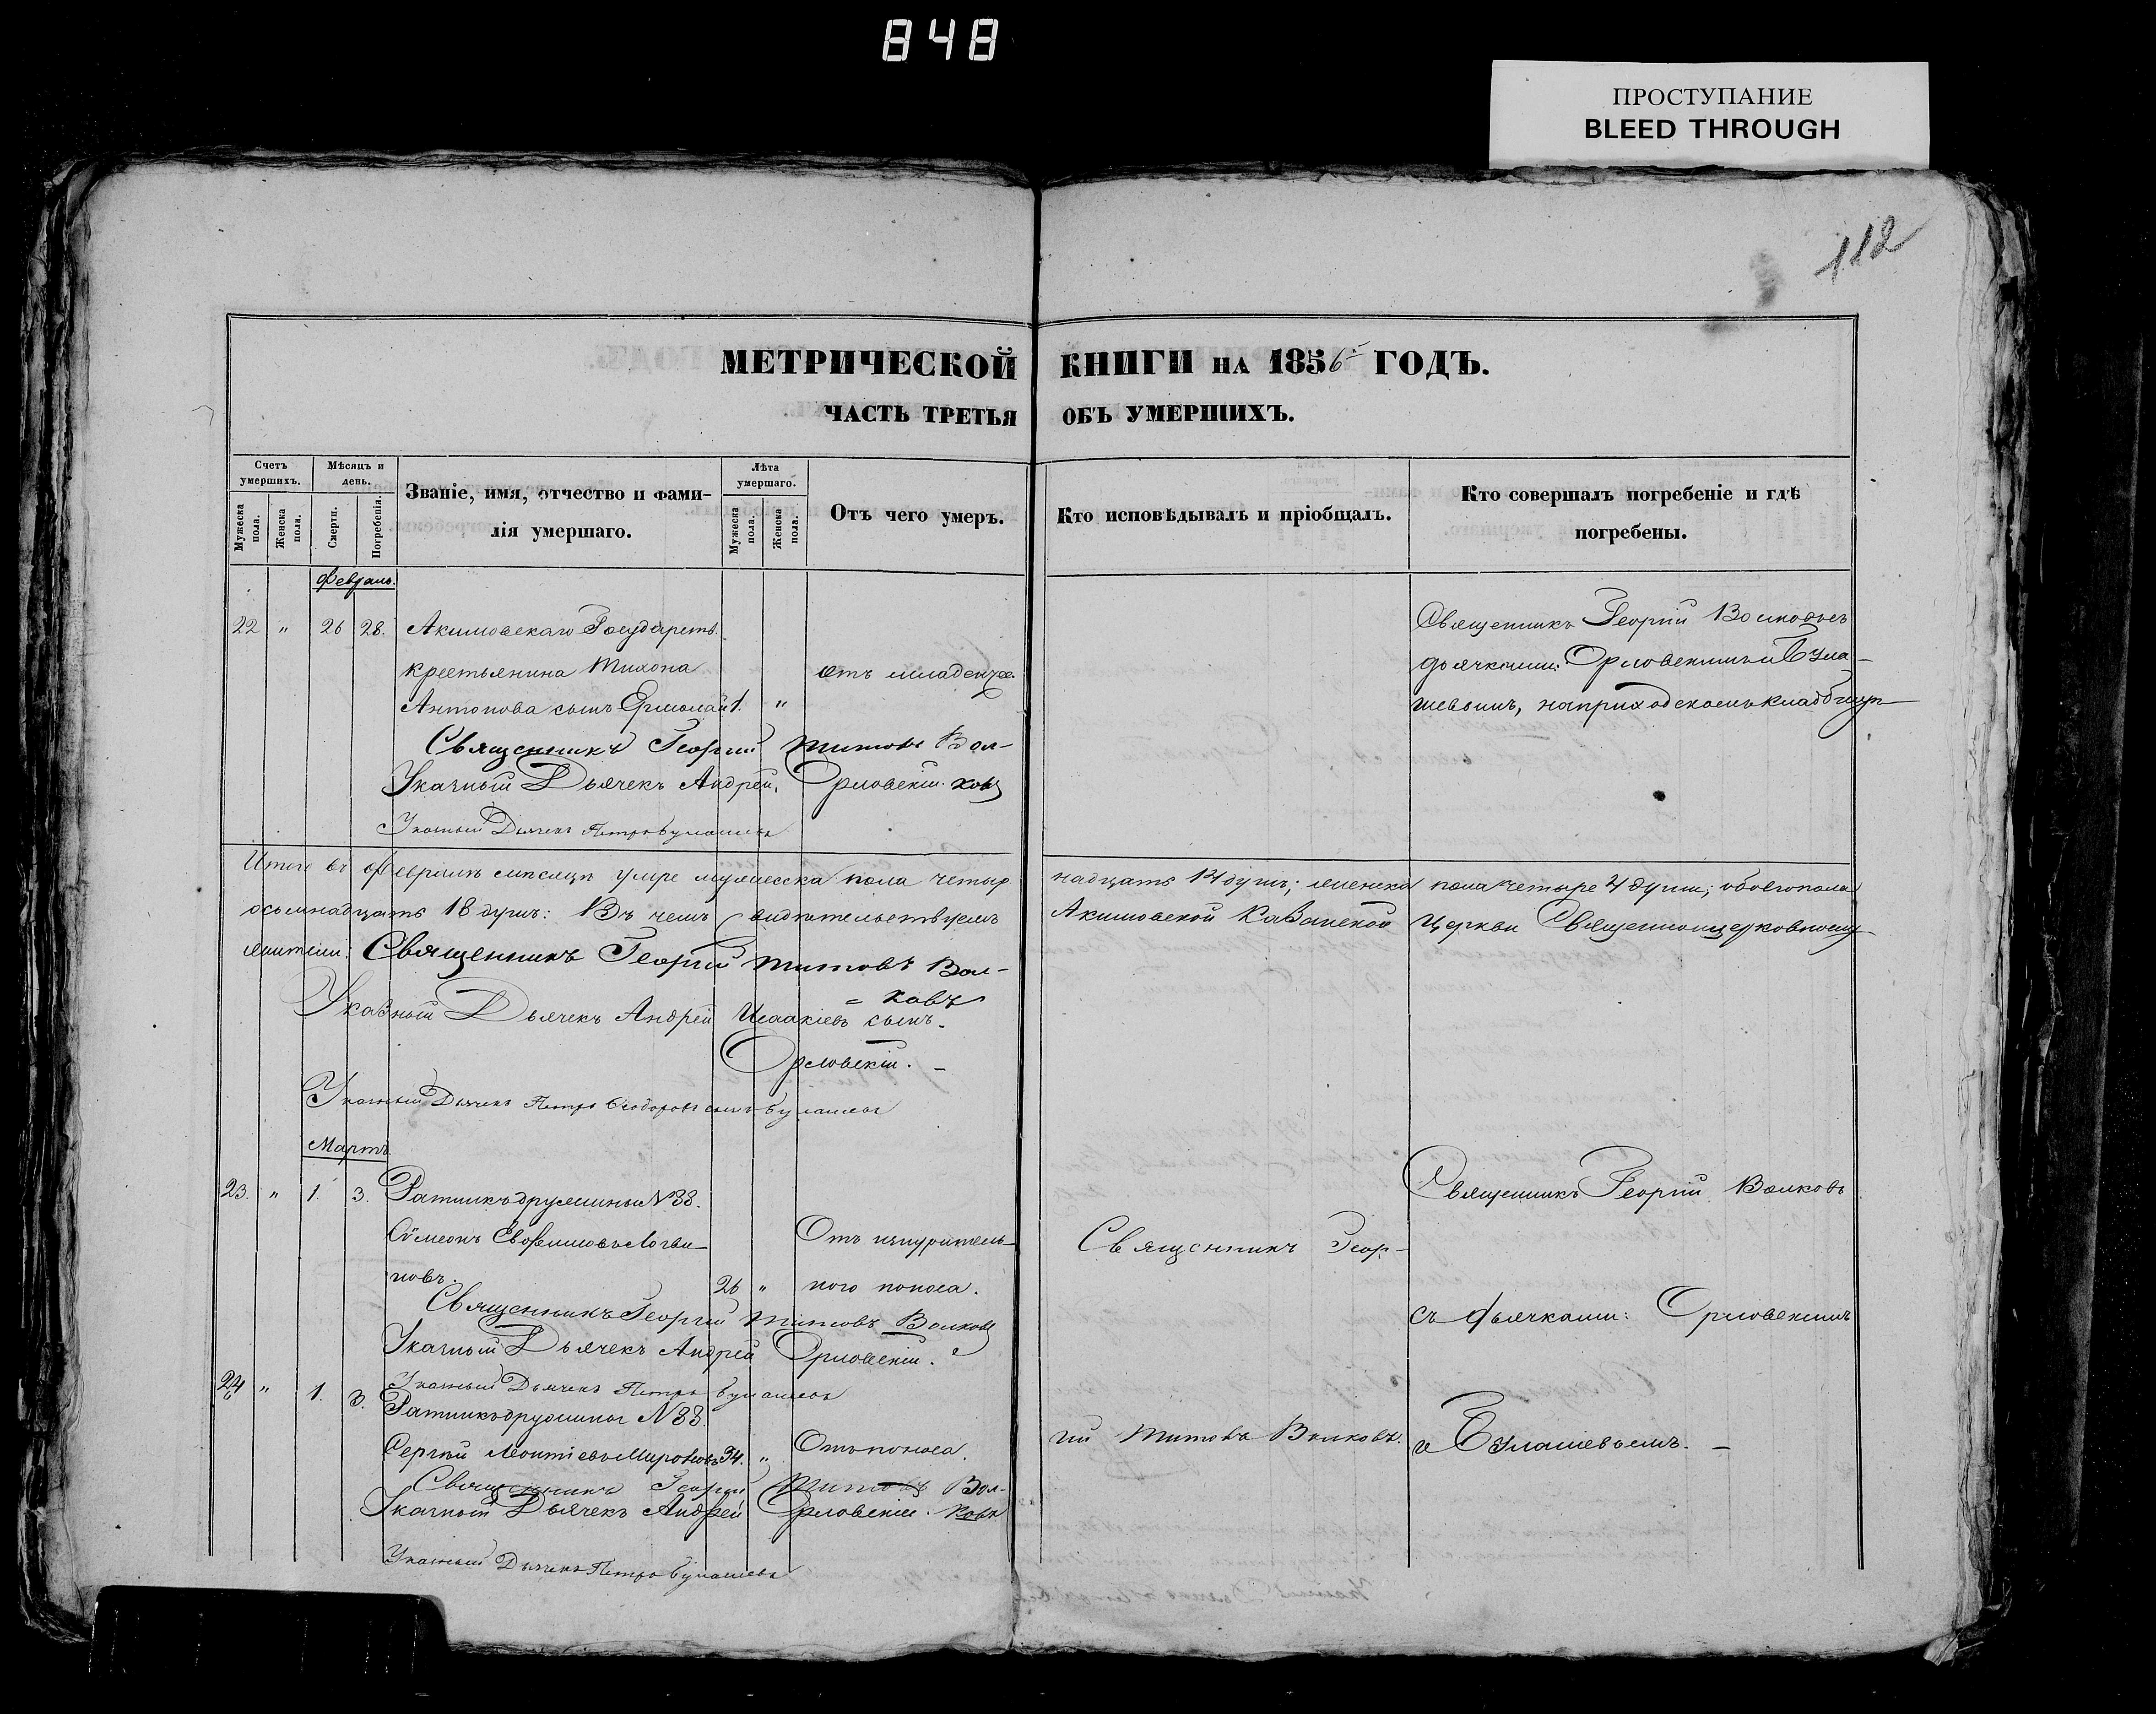 848
ПРОСТУПАНИЕ
BLEED THROUGH
112
МЕТРИЧЕСКОЙ КНИГИ НА 1856 ГОДЪ.
ЧАСТЬ ТРЕТЬЯ ОБЪ УМЕРШИХЪ.
Счетъ умершихъ.
Мужеска пола.
Женска пола.
Мѣсяцъ и день.
Смерти.
Погребенія.
Званіе, имя, отчество и фами-
лія умершаго.
Лѣта умершаго.
Мужеска пола.
Женска пола.
Отъ чего умеръ.
Кто исповѣдывалъ и пріобщалъ.
Кто совершалъ погребеніе и гдѣ
погребены.
Февраль.
22 " 26 28. Акимовскаго Государств. Священникъ Георгій Волковъ съ
крестьянина Тихона отъ младенчес. дьячками: Орловскимъ и Була-
Антонова сынъ Ермолай 1. " шевымъ, на приходскомъ кладбищѣ
Священникъ Георгій Титовъ Вол-
Указный Дьячекъ Андрей Орловскій. ковъ
Указный Дьячекъ Петръ Булашевъ
Итого въ Февралѣ мѣсяцѣ умре мужеска пола четыр надцать 14 душъ; женска пола четыре 4 души; обоего пола
осьмнадцать 18 душъ: Въ чемъ свидѣтельствуемъ Акимовской Казанской Церкви Священноцерковнослу-
жители: Священникъ Георгій Титовъ Вол-
= ковъ
Указный Дьячекъ Андрей Исаакіевъ сынъ
Орловскій.
Указный Дьячекъ Петръ Ѳеодоровъ сынъ Булашевъ
Мартъ
23. " 1. 3. Ратникъ дружины № 88. Священникъ Георгій Волковъ
Сѵмеонъ Евфимовъ Логви- Отъ изнуритель- Священникъ Геор-
новъ. 26 " ного поноса.
Священникъ Георгій Титовъ Волковъ съ дьячками: Орловскимъ
Указный Дьячекъ Андрей Орловскій.
Указный Дьячекъ Петръ Булашевъ
24 " 1. 3. Ратникъ дружины № 88.
Сергѣй Леонтіевъ Мироновъ 34. " Отъ поноса. гій Титовъ Волковъ. и Булашевымъ. –
Священникъ Георгій Титовъ Вол-
Указный Дьячекъ Андрей Орловскій. ковъ
Указный Дьячекъ Петръ Булашевъ